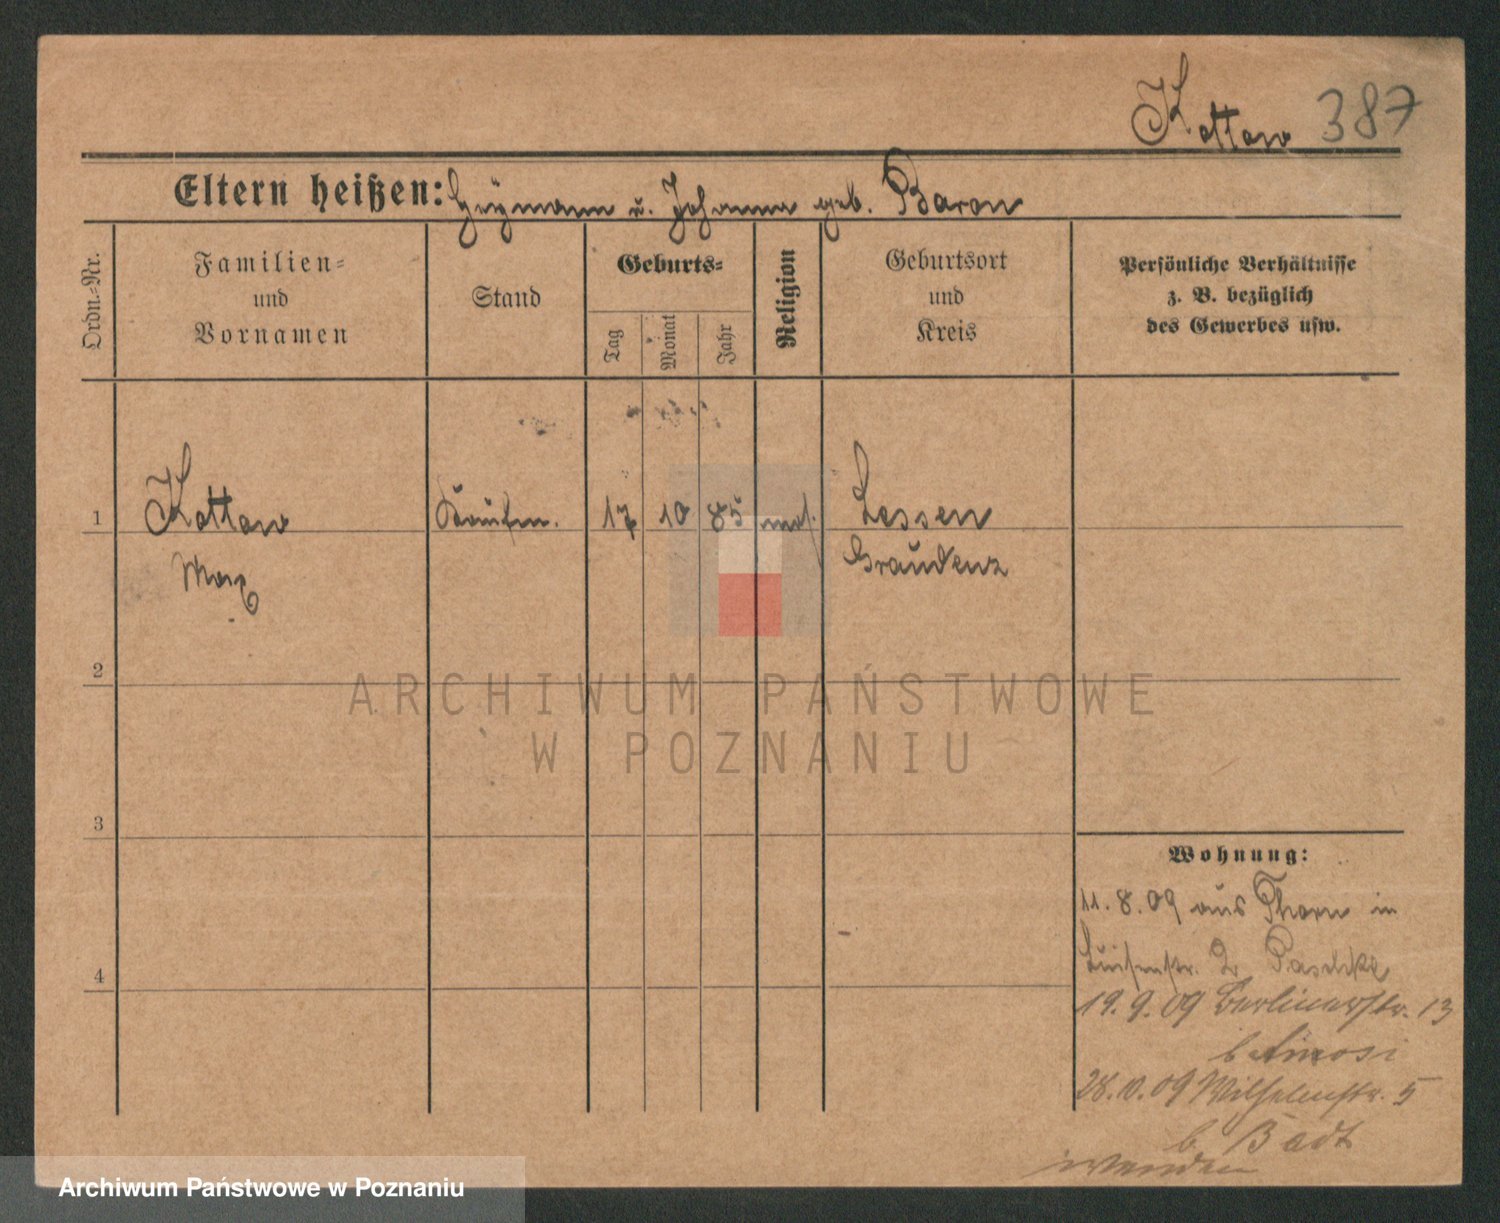 Kottow 387
Eltern heißen: Heymann u. Johanna geb. Baron
Ordn=Nr.
Familien=
und
Vornamen
Stand
Geburts=
Tag
Monat
Jahr
Religion
Geburtsort
und
Kreis
Persönliche Verhältnisse
z. B. bezüglich
des Gewerbes usw.
1 Kottow Kaufm. 17 10 85 mos. Lessen
Max Graudenz
2
ARCHIWUM PAŃSTWOWE
W POZNANIU
3
Wohnung:
11. 8. 09 aus Thorn in
Luisenstr. 2 Paschke
4
19. 9. 09 Berlinerstr. 13
b
28. 10. 09 Wilhelmstr. 5
b Badt
wenden
Archiwum Państwowe w Poznaniu